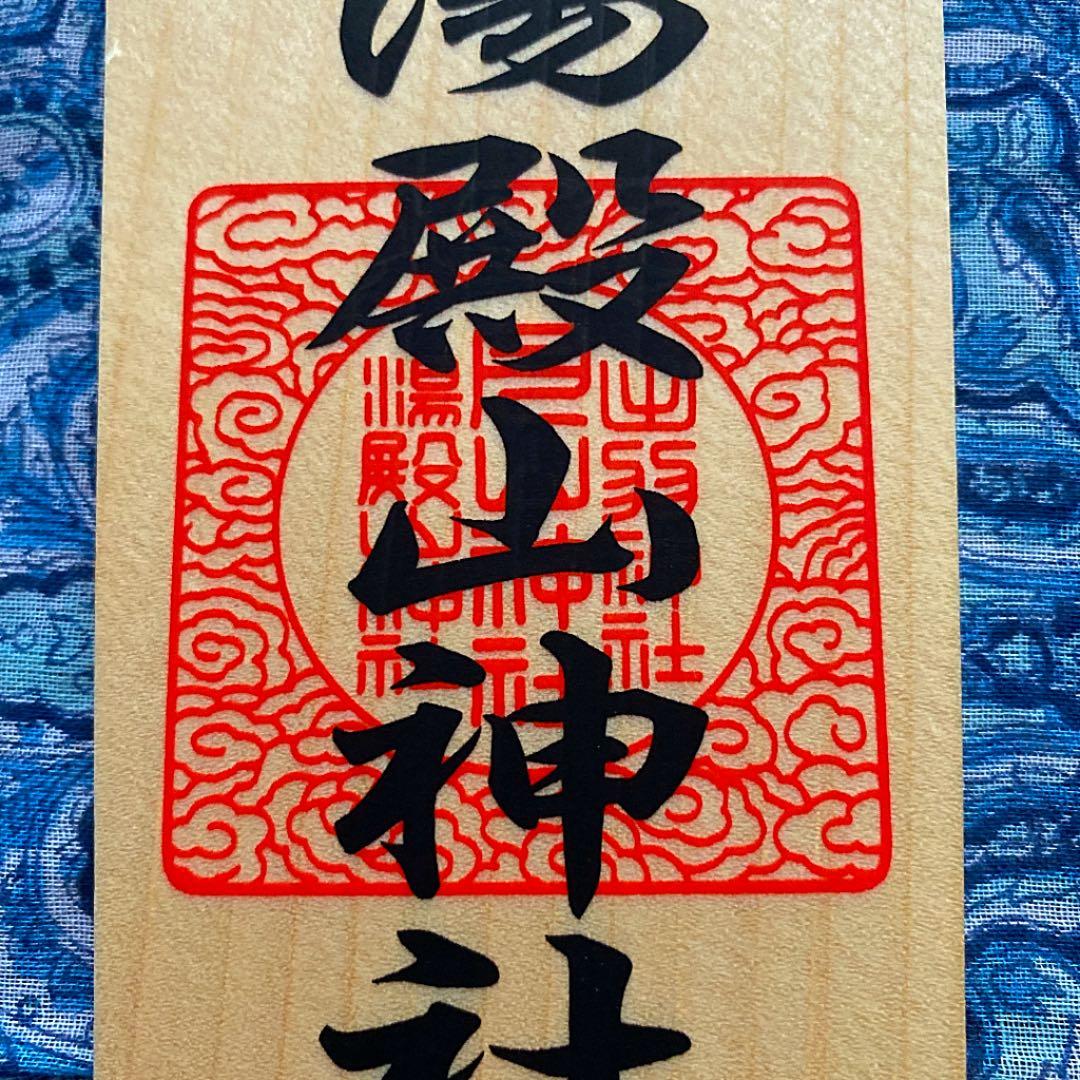 湯殿山神社
出羽神社
月山神社
湯殿山神社